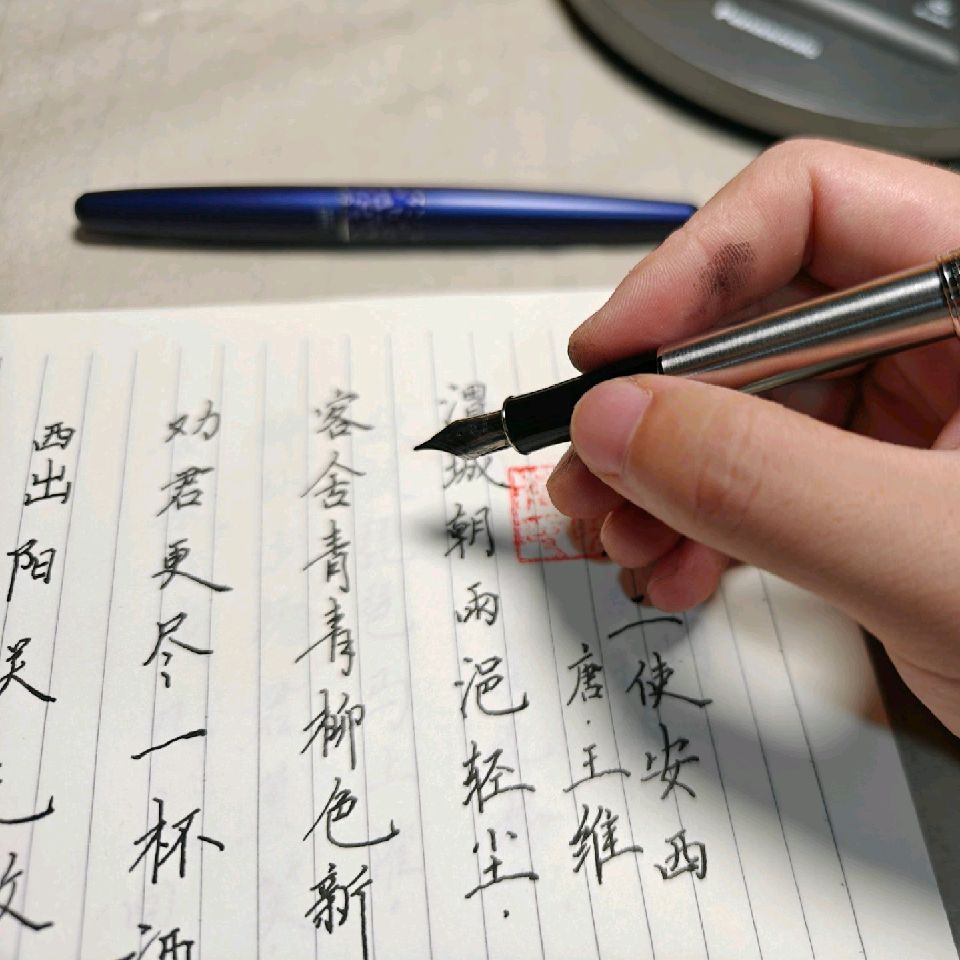 Panasonic
二使安西
唐·王维
渭城朝雨浥轻尘.
客舍青青柳色新
劝君更尽一杯酒
西出阳关无故